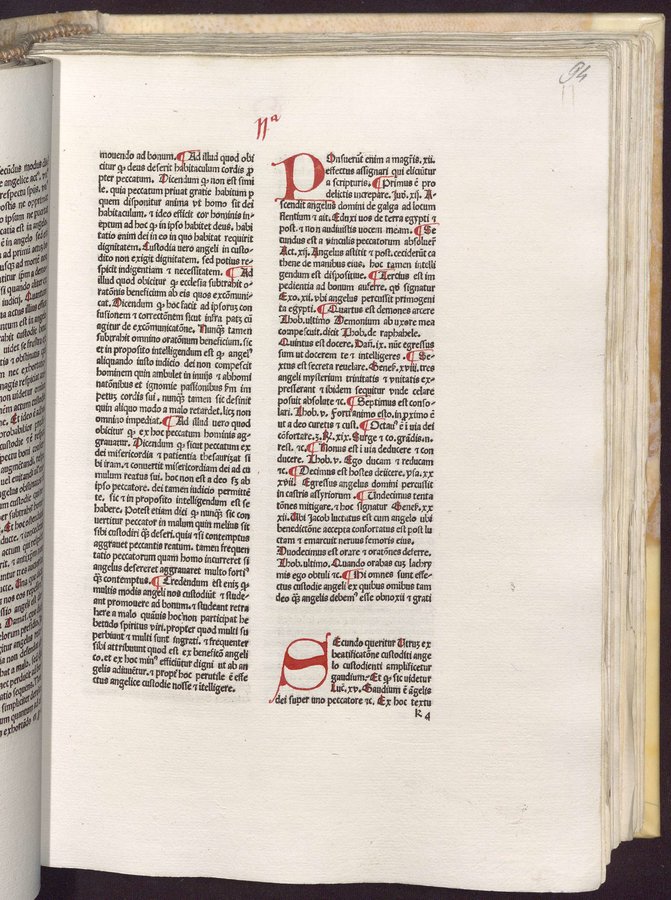 94
IIa
movendo ad bonum. Ad illud quod obi
citur ꝙ deus deserit habitaculum cordis ꝓ
pter peccatum. Dicendum ꝙ non est simi
le. quia peccatum privat gratie habitum ꝑ
quem disponitur anima vt homo sit dei
habitaculum. et ideo efficit cor hominis in⸗
eptum ad hoc ꝙ in ipso habitet deus. habi
tatio enim dei in eo in quo habitat requirit
dignitatem. Custodia vero angeli in custo⸗
dito non exigit dignitatem. sed potius re⸗
spicit indigentiam et necessitatem. Ad
illud quod obicitur ꝙ ecclesia subtrahit o⸗
rationis beneficium ab eis quos excōmuni⸗
cat. Dicendum ꝙ hoc facit ad ipsorum con
fusionem et correctōnem sicut infra patet cū
agitur de excōmunicatōne. Nunꝗ tamen
subtrahit omnino oratōnum beneficium. sic
et in proposito intelligendum est ꝙ angelꝰ
aliquando iusto iudicio dei non compescit
hominem quin ambulet in inuijs et abhomi
natōnibus et ignomie passionibus fm im
petuꝫ cordis sui. nunꝗ tamen sic desinit
quin aliquo modo a malo retardet. licꝫ non
omnino impediat. Ad illud vero quod
obicitur ꝙ ex hoc peccatum hominis ag⸗
grauatur. Dicendum ꝙ sicut peccatum ex
dei misericordia et patientia thesaurizat si
bi iram. et conuertit misericordiam dei ad cu
mulum reatus sui. hoc non est a deo sꝫ ab
ipso peccatore. dei tamen iudicio permitti
te. sic et in proposito intelligendum est se
habere. Potest etiam dici ꝙ nunꝗ sic con
uertitur peccator in malum quin melius sit
sibi custodiri ꝗꝫ deseri. quia et si contemptus
aggrauet peccantis reatum. tamen frequen
tatio peccatorum quam homo incurreret si
angelus desereret aggrauaret multo fortiꝰ
ꝗꝫ contemptus. Credendum est enim ꝙ
multis modis angeli nos custodiūt et stude⸗
ant promouere ad bonum. et studeant retra
here a malo quāuis hoc non participat he
betudo spiritus viri. propter quod multi su
perbiunt et multi sunt ingrati. et frequenter
sibi attribuunt quod est ex beneficō angeli
co. et ex hoc minꝰ efficiūtur digni ut ab an
gelis adiuuētur. et propter hoc perutile ē esse
ctus angelice custodie nosse et ītelligere.
POnsueuerūt enim a magistris. xii.
effectus assignari qui eliciūtur
a scripturis. Primus ē pro
delictis increpare. Iuď. xij. A⸗
scendit angelus domini de galga ad locum
flentium et ait. Eduxi uos de terra egypti et
post. et non audiuistis uocem meam. Se
cundus est a vinculis peccatorum absoluere
Act. xij. Angelus astitit et post. ceciderūt ca
thene de manibus eius. hoc tamen intelli
gendum est dispositiue. Tercius est im
pedientia ad bonum auferre. qď signatur
Exo. xii. vbi angelus percussit primogeni
ta egypti. Quartus est demones arcere
Thob. ultimo Demonium ab uxore mea
compescuit. dicit Thob. de raphahele.
Quintus est docere. Dañ. ix. nūc egressus
sum ut docerem te et intelligeres. Se⸗
xtus est secreta reuelare. Geneſ. xviii. tres
angeli mysterium trinitatis et vnitatis ex⸗
presserant et ibidem sequitur vnde celare
posuit absolute ⁊c. Septimus est conso⸗
lari. Thob. v. Forti animo esto. in proximo ē
ut a deo curetis et cust. Octauꝰ ē ī uia dei
cōfortare. 3. Rꝫ. xix. Surge et co. grādis. n.
rest. ⁊c. Nonus est ī uia deducere et con
ducere. Thob. v. Ego ducam et reducam
⁊c. Decimus est hostes deiicere. ysa. xx
xvii. Egressus angelus domini percussit
in castris assyriorum. Undecimus tenta
tōnes mitigare. et hoc signatur Geneſ. xx
xii. Vbi Iacob luctatus est cum angelo ubi
benedictōne accepta confortatus est post lu
ctam et emarcuit neruus femoris eius.
Duodecimus est orare et oratōnes deferre.
Thob. ultimo. Quando orabas cuꝫ lachry
mis ego obtuli ⁊c. Isti omnes sunt effe⸗
ctus custodie angeli ex quibus omnibus tam
deo ꝗꝫ angelis debemꝰ esse obnoxii et grati
SEcundo queritur Utrum ex
beatificatōne custoditi ange
lo custodienti amplificetur
gaudium. Et ꝙ sic uidetur
Luč. xv. Gaudium ē āgelis
dei super uno peccatore ⁊c. Ex hoc textu
k 4